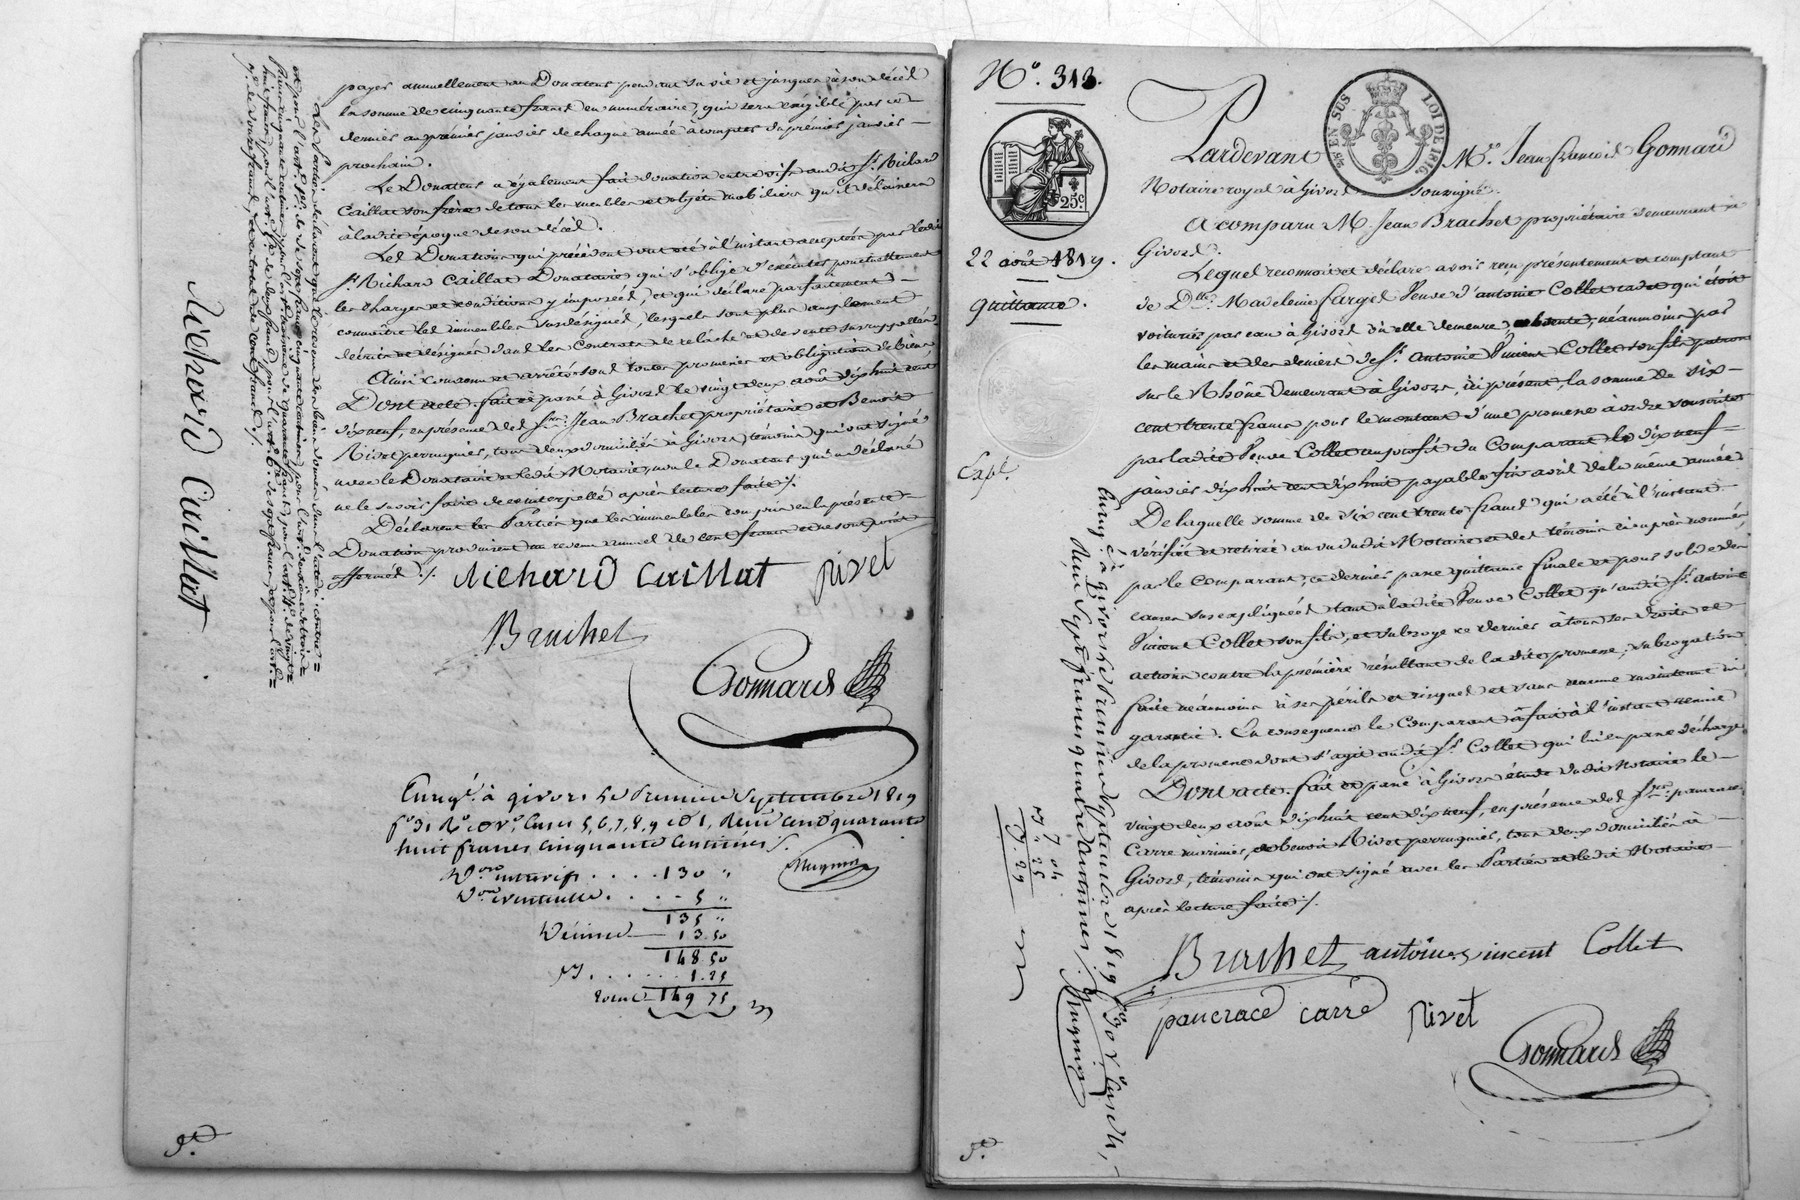 payer annuellement au Donateur pendant sa vie et jusques à son décès
la somme de cinquante francs en numéraire, qui sera exigible par ce
dernier au premier janvier de chaque année à compter du premier janvier
prochain.
Le Donateur a également fait donation entre vifs audit Sr. Richard
Caillat son frère de tous les meubles et objets mobiliers qu'il délaissera
à ladite époque de son décès.
Les Donations qui précèdent ont été à l'instant acceptées par ledit
Sr. Richard Caillat Donataire qui s'oblige d'exécuter ponctuellement
les charges et conditions y imposées, et qui déclare parfaitement
connoître les immeubles susdésignés, lesquels sont plus amplement
décrits et désignés dans les contrats de relâche et de vente susrappellés
Ainsi convenu et arrêté sous toutes promesses et obligations de biens
Dont acte. fait et passé à Givors le vingt deux août dix huit cent
dix neuf, en présence des Srs. Jean Brachet propriétaire et Benoit
Rivet perruquier, tous deux domiciliés à Givors, témoins qui ont signé
avec le Donataire et ledit Notaire, non le Donateur qui a déclaré
ne le savoir faire de ce interpellé après lecture faite ./.
Déclarent les Parties que les immeubles compris en la présente
Donation produisent un revenu annuel de cent francs et ne sont point
affermés ./.
Richard Caillat Rivet
Brachet
Gonnard
Enregé. à givors le Premier Septembre 1819
fo 31 Ro et Vo, Cases 5, 6, 7, 8, 9 et 1, Reçu cent quarante
huit francs cinquante centimes ./.
Don entrevifs . . . . . 130 "
Don eventuelle . . . . 5 "
135 "
Décime 13.50
148.50
. . . . . . 1.25
total 149 75
Richard Caillat
No. 313.
25c.
22 août 1819.
Quittance.
Expé.
EN SUS
LOI DE 1816
Pardevant Me. Jean françois Gonnard
Notaire royal à Givors soussigné.
A comparu M. Jean Brachet propriétaire demeurant à
Givors.
Lequel reconnoit et déclare avoir reçu présentement et comptant
de Dlle. Madeleine farges Veuve d'antoine Collet cadet qui étoit
voiturier par eau à Givors où elle demeure, absente, néanmoins par
les mains et des deniers de Sr. Antoine Vincent Collet son fils patron
sur le Rhône demeurant à Givors, ici présent, la somme de six
cent trente francs pour le montant d'une promesse à ordre souscrite
par ladite Veuve Collet au profit du Comparant le dix neuf
janvier dix huit cent dix huit payable fin avril de la même année
De laquelle somme de six cent trente francs qui a été à l'instant
vérifiée et retirée au vu dudit Notaire et des témoins ci après nommés
par le Comparant; ce dernier passe quittance finale et pour solde des
causes susexpliquées tant à ladite Veuve Collet qu'audit Sr. Antoine
Vincent Collet son fils, et subroge ce dernier à tous ses droits et
actions contre la première résultant de la dite promesse; subrogation
faite néanmoins à ses périls et risques et sans aucune maintenue ni
garantie. En conséquence le Comparant a fait à l'instant remise
de la promesse dont s'agit audit Sr. Collet qui lui en passe décharge.
Dont acte. fait et passé à Givors étude dudit Notaire le
vingt deux août dix huit cent dix neuf, en présence des Srs. pancrace
Carre marinier, et benoit Rivet perruquier, tous deux domiciliés à
Givors, témoins qui ont signé avec les Parties et ledit Notaire
après lecture faite ./.
Brachet antoine vincent Collet
pancrace carré Rivet
Gonnard
Enregé. à givors le Premier Septembre 1819 fo 30 Vo Case 4,
Reçu Sept francs quatre centimes ./.
7 04
25
7. 29